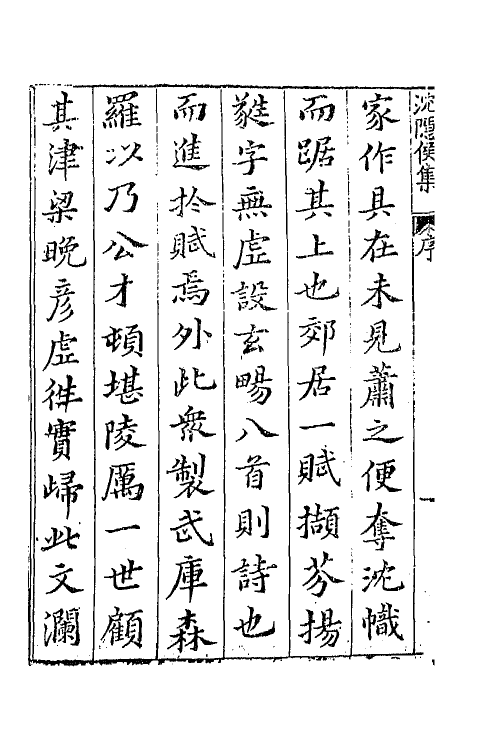 沈隱侯集 序 一
家作具在未見蕭之便奪沈幟
而踞其上也郊居一賦擷芬揚
蕤字無虛設玄暢八首則詩也
而進於賦焉外此衆製武庫森
羅以乃公才頓堪陵厲一世顧
其津梁晚彦虛徃實歸此文瀾